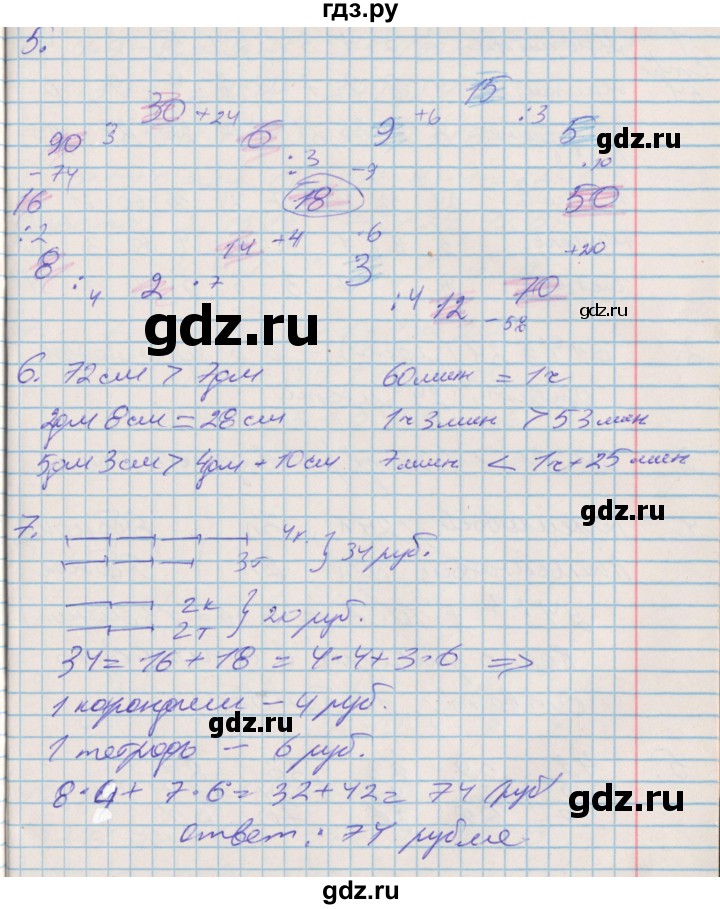 гдз.ру
5.
15
30 +24 9 +6 :3
90 3 6 5
gdz.ru
- 74 :3 -9 :10
16 18 50
:2 14 +4 ·6 +20
8 2 3
:4 ·7 :4 12 70
- 52
gdz.ru
6. 72см > 7дм 60мин = 1ч
2дм 8см = 28см 1ч 3мин > 53мин
5дм 3см > 4дм + 10см 7мин < 1ч + 25мин
gdz.ru
7. 4к. } 34 руб.
3т
2к } 20 руб.
2т
34 = 16 + 18 = 4·4 + 3·6 =>
1 карандаш – 4 руб.
gdz.ru
1 тетрадь – 6 руб.
8·4 + 7·6 = 32 + 42 = 74 (руб)
gdz.ru
ответ: 74 рубля
gdz.ru